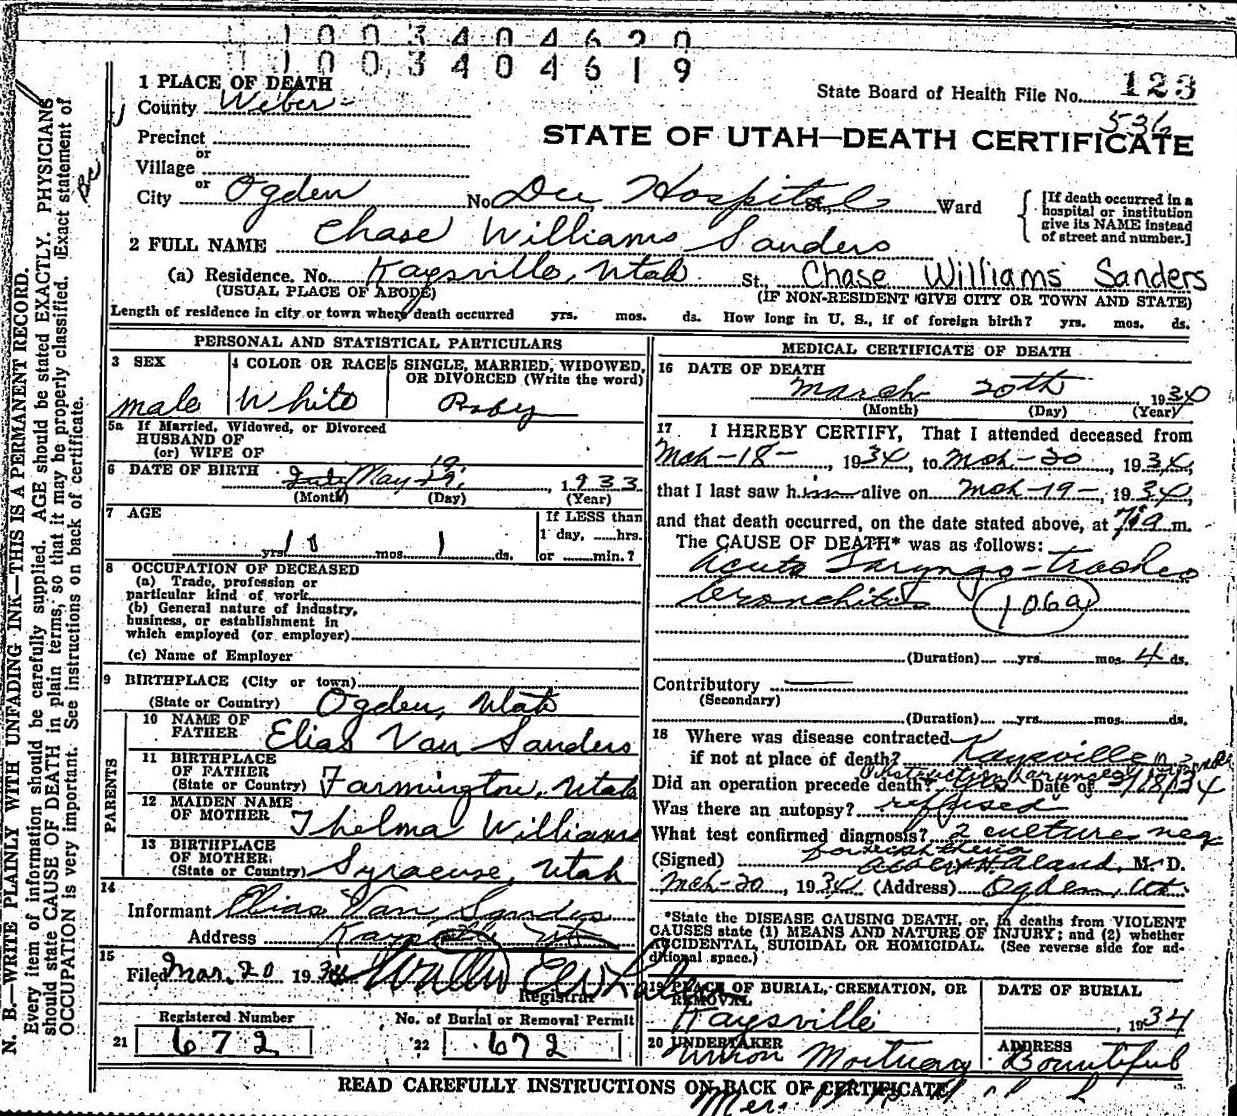 1 1 0 0 3 4 0 4 6 2 0
1 1 0 0 3 4 0 4 6 1 9
1 PLACE OF DEATH
State Board of Health File No. 123
County Weber
536
Precinct
STATE OF UTAH—DEATH CERTIFICATE
or
Village
or
City Ogden No. Dee Hospital St., Ward
[If death occurred in a hospital or institution give its NAME instead of street and number.]
2 FULL NAME Chase Williams Sanders
(a) Residence. No. Kaysville, Utah St., Chase Williams Sanders
(USUAL PLACE OF ABODE) (IF NON-RESIDENT GIVE CITY OR TOWN AND STATE)
Length of residence in city or town where death occurred yrs. mos. ds. How long in U. S., if of foreign birth? yrs. mos. ds.
PERSONAL AND STATISTICAL PARTICULARS
3 SEX 4 COLOR OR RACE 5 SINGLE, MARRIED, WIDOWED,
OR DIVORCED (Write the word)
male White Baby
5a If Married, Widowed, or Divorced
HUSBAND OF
(or) WIFE OF
6 DATE OF BIRTH July May 19, 1933
(Month) (Day) (Year)
7 AGE
If LESS than
1 day, hrs.
yrs. 10 mos. 1 ds. or min.?
8 OCCUPATION OF DECEASED
(a) Trade, profession or
particular kind of work
(b) General nature of industry,
business, or establishment in
which employed (or employer)
(c) Name of Employer
9 BIRTHPLACE (City or town)
(State or Country) Ogden, Utah
PARENTS
10 NAME OF
FATHER Elias Van Sanders
11 BIRTHPLACE
OF FATHER
(State or Country) Farmington, Utah
12 MAIDEN NAME
OF MOTHER Thelma Williams
13 BIRTHPLACE
OF MOTHER
(State or Country) Syracuse, Utah
14
Informant Elias Van Sanders
Address Kaysville Utah
15
Filed Mar. 20 1934
Registrar
Registered Number No. of Burial or Removal Permit
21 672 22 672
MEDICAL CERTIFICATE OF DEATH
16 DATE OF DEATH
March 20th 1934
(Month) (Day) (Year)
17 I HEREBY CERTIFY, That I attended deceased from
Mch-18-, 1934, to Mch-20, 1934,
that I last saw him alive on Mch-19-, 1934,
and that death occurred, on the date stated above, at 7:a m.
The CAUSE OF DEATH* was as follows:
Acute Laryngo-tracheo
bronchitis 106a
(Duration) yrs. mos. 4 ds.
Contributory
(Secondary)
(Duration) yrs. mos. ds.
18 Where was disease contracted
if not at place of death? Kaysville
Did an operation precede death? yes Date of 3/18/34
Was there an autopsy? reffused
What test confirmed diagnosis? 2 cultures neg
for diphtheria
(Signed) M. D.
Mch-20, 1934 (Address) Ogden, Ut.
*State the DISEASE CAUSING DEATH, or, in deaths from VIOLENT
CAUSES state (1) MEANS AND NATURE OF INJURY; and (2) whether
ACCIDENTAL, SUICIDAL OR HOMICIDAL. (See reverse side for additional space.)
19 PLACE OF BURIAL, CREMATION, OR
REMOVAL
Kaysville
DATE OF BURIAL
, 1934
20 UNDERTAKER
Union Mortuary
ADDRESS
Bountiful
READ CAREFULLY INSTRUCTIONS ON BACK OF CERTIFICATE
N. B.—WRITE PLAINLY WITH UNFADING INK—THIS IS A PERMANENT RECORD.
Every item of information should be carefully supplied. AGE should be stated EXACTLY. PHYSICIANS
should state CAUSE OF DEATH in plain terms, so that it may be properly classified. Exact statement of
OCCUPATION is very important. See instructions on back of certificate.